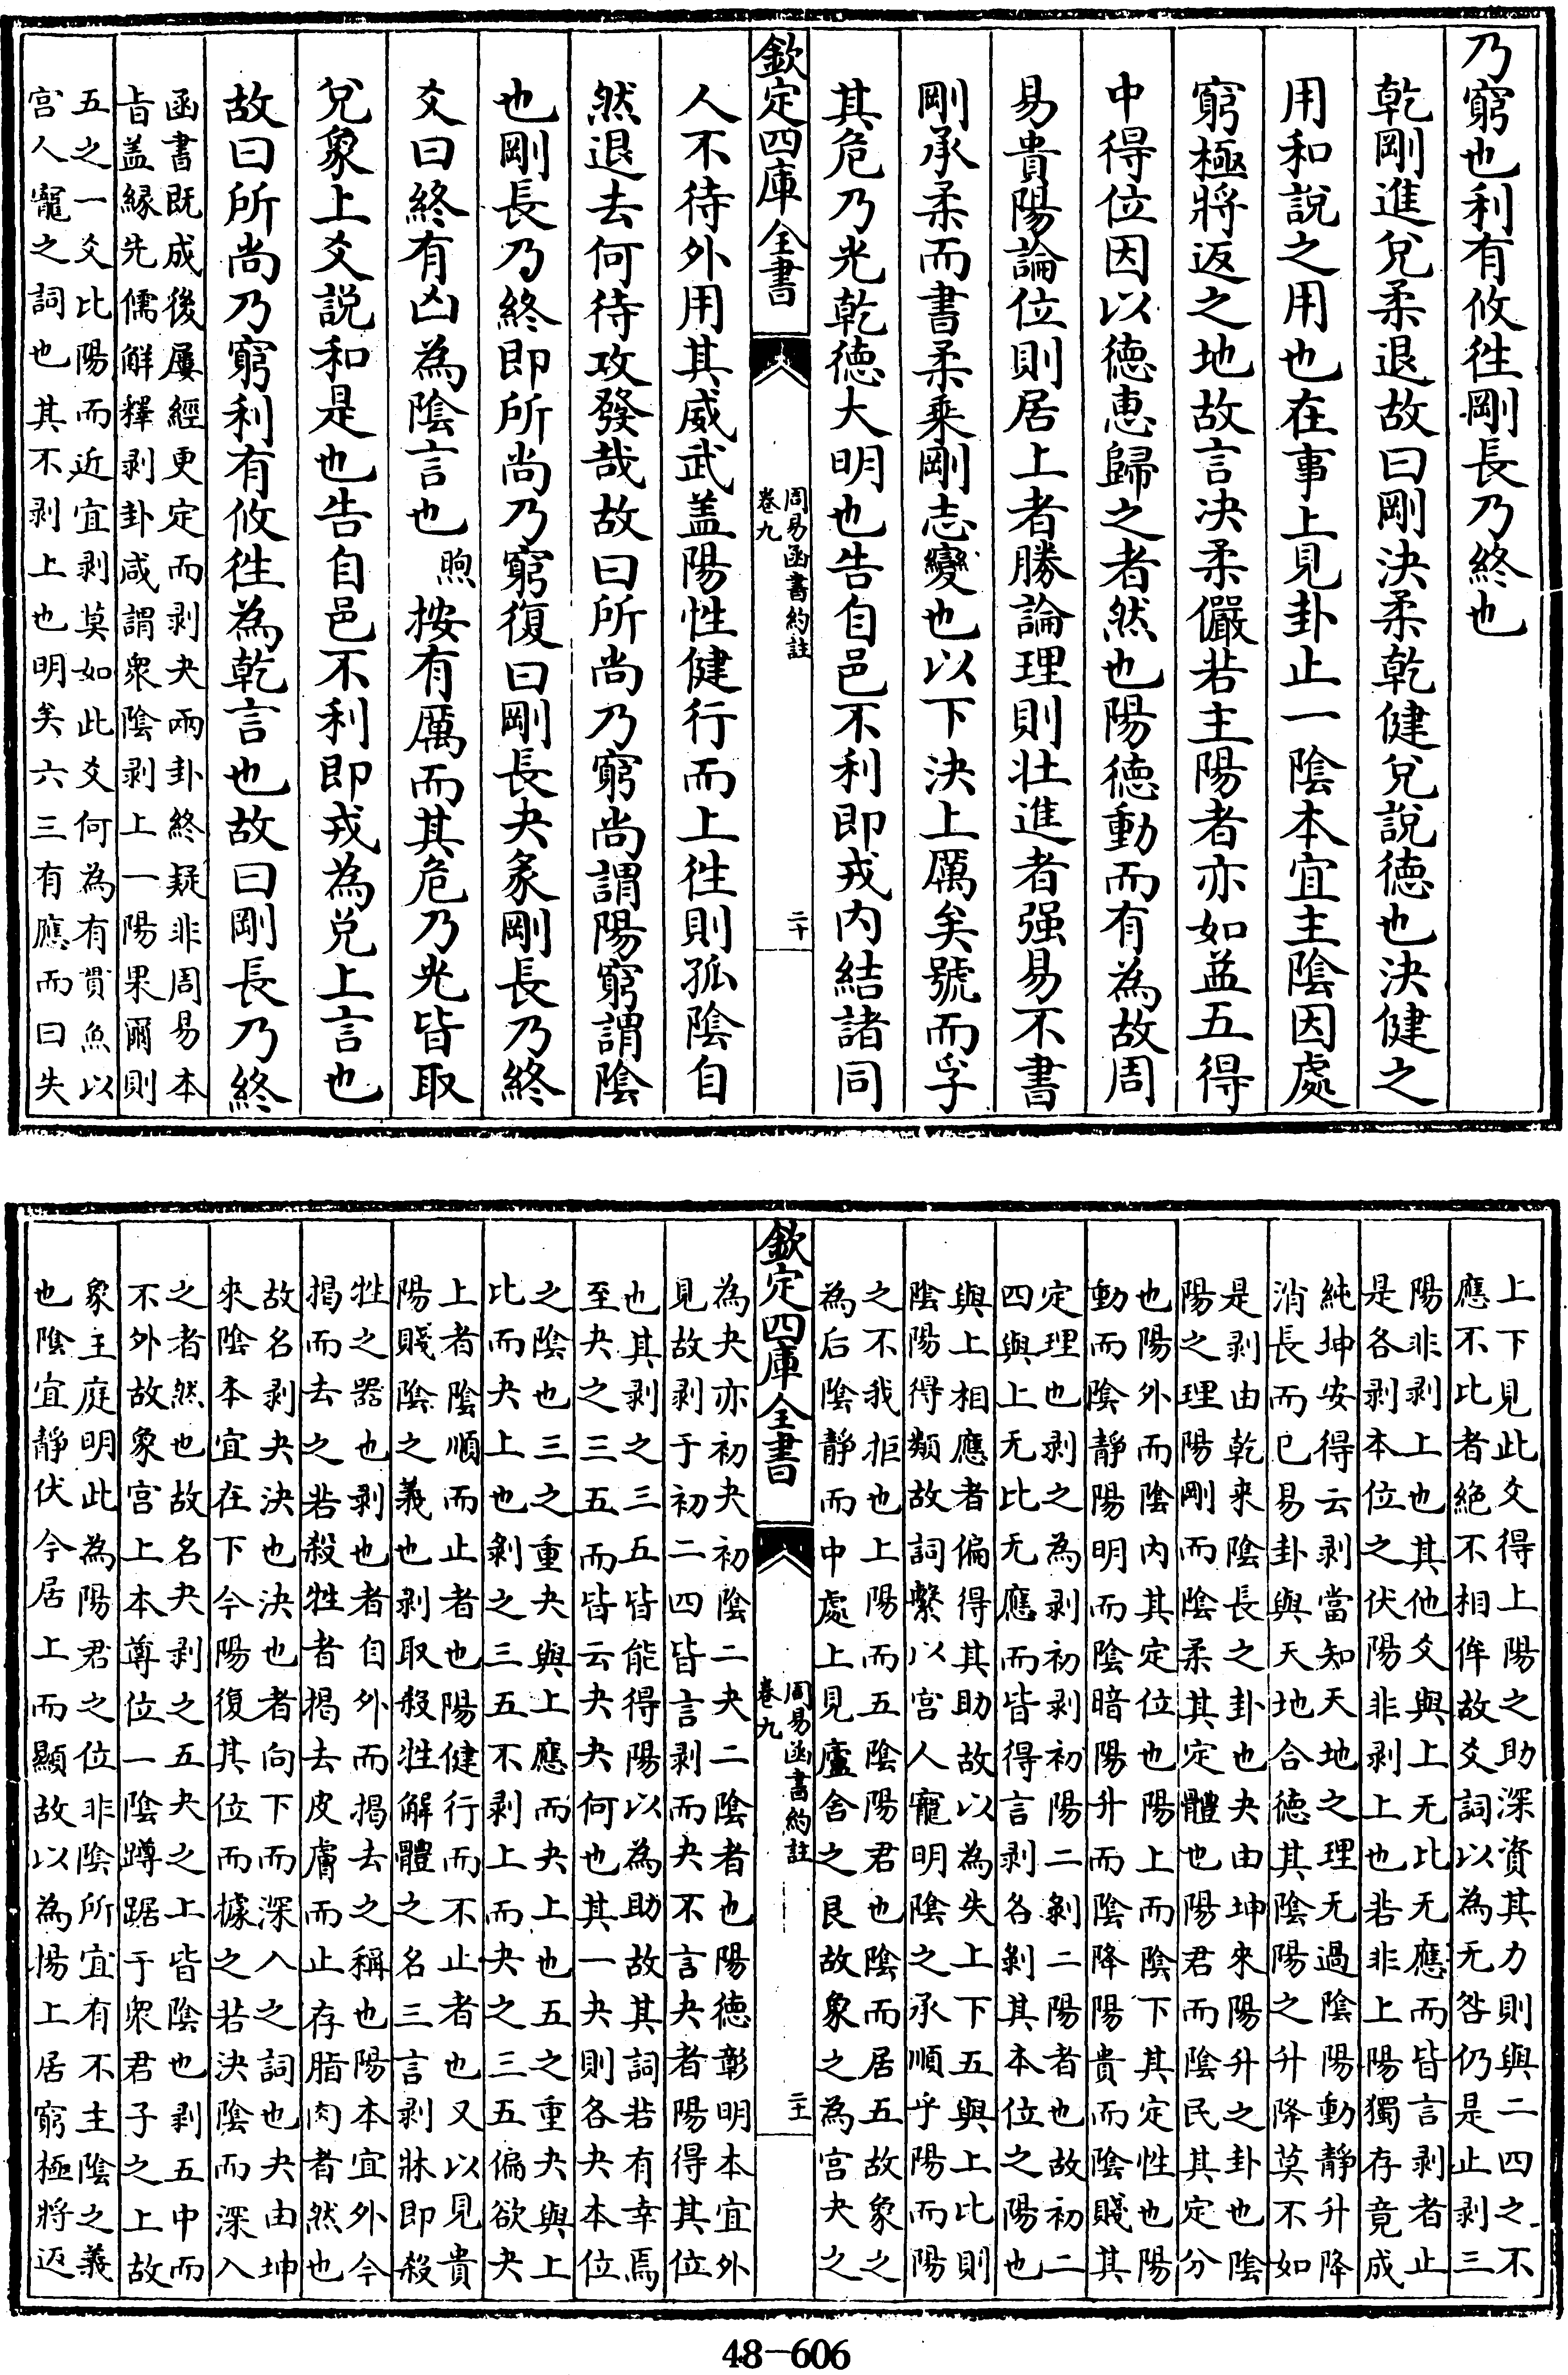 乃窮也利有攸徃剛長乃終也
乾剛進兌柔退故曰剛決柔乾健兌說徳也決健之
用和說之用也在事上見卦止一陰本宜主陰因處
窮極將返之地故言决柔儼若主陽者亦如益五得
中得位因以徳恵歸之者然也陽徳動而有為故周
易貴陽論位則居上者勝論理則壯進者强易不書
剛承柔而書柔乘剛志變也以下決上厲矣號而孚
其危乃光乾徳大明也告自邑不利即戎内結諸同
欽定四庫全書
周易函書約註
卷九
二十
人不待外用其威武盖陽性健行而上徃則孤陰自
然退去何待攻發哉故曰所尚乃窮尚謂陽窮謂陰
也剛長乃終即所尚乃窮復曰剛長夬彖剛長乃終
爻曰終有凶為陰言也煦按有厲而其危乃光皆取
兌象上爻説和是也告自邑不利即戎為兌上言也
故曰所尚乃窮利有攸徃為乾言也故曰剛長乃終
函書既成後屢經更定而剥夬兩卦終疑非周易本
㫖盖緣先儒解釋剥卦咸謂衆陰剥上一陽果爾則
五之一爻比陽而近宜剥莫如此爻何為有貫魚以
宫人寵之詞也其不剥上也明矣六三有應而曰失
上下見此爻得上陽之助深資其力則與二四之不
應不比者絶不相侔故爻詞以為无咎仍是止剥三
陽非剥上也其他爻與上无比无應而皆言剥者止
是各剥本位之伏陽非剥上也若非上陽獨存竟成
純坤安得云剥當知天地之理无過陰陽動静升降
消長而已易卦與天地合徳其陰陽之升降莫不如
是剥由乾来陰長之卦也夬由坤來陽升之卦也陰
陽之理陽剛而陰柔其定體也陽君而陰民其定分
也陽外而陰内其定位也陽上而陰下其定性也陽
動而陰静陽明而陰暗陽升而陰降陽貴而陰賤其
定理也剥之為剥初剥初陽二剥二陽者也故初二
四與上无比无應而皆得言剥各剥其本位之陽也
與上相應者偏得其助故以為失上下五與上比則
陰陽得類故詞繫以宫人寵明陰之承順乎陽而陽
之不我拒也上陽而五陰陽君也陰而居五故象之
為后陰静而中處上見廬舎之艮故象之為宫夬之
欽定四庫全書
周易函書約註
卷九
二十一
為夬亦初夬初陰二夬二陰者也陽徳彰明本宜外
見故剥于初二四皆言剥而夬不言夬者陽得其位
也其剥之三五皆能得陽以為助故其詞若有幸焉
至夬之三五而皆云夬夬何也其一夬則各夬本位
之陰也三之重夬與上應而夬上也五之重夬與上
比而夬上也剥之三五不剥上而夬之三五偏欲夬
上者陰順而止者也陽健行而不止者也又以見貴
陽賤陰之義也剥取殺牲解體之名三言剥牀即殺
牲之器也剥也者自外而揭去之稱也陽本宜外今
揭而去之若殺牲者揭去皮膚而止存脂肉者然也
故名剥夬決也決也者向下而深入之詞也夬由坤
來陰本宜在下今陽復其位而據之若決陰而深入
之者然也故名夬剥之五夬之上皆陰也剥五中而
不外故象宫上本尊位一陰蹲踞于衆君子之上故
象主庭明此為陽君之位非陰所宜有不主陰之義
也陰宜静伏今居上而顯故以為揚上居窮極將返
48-606